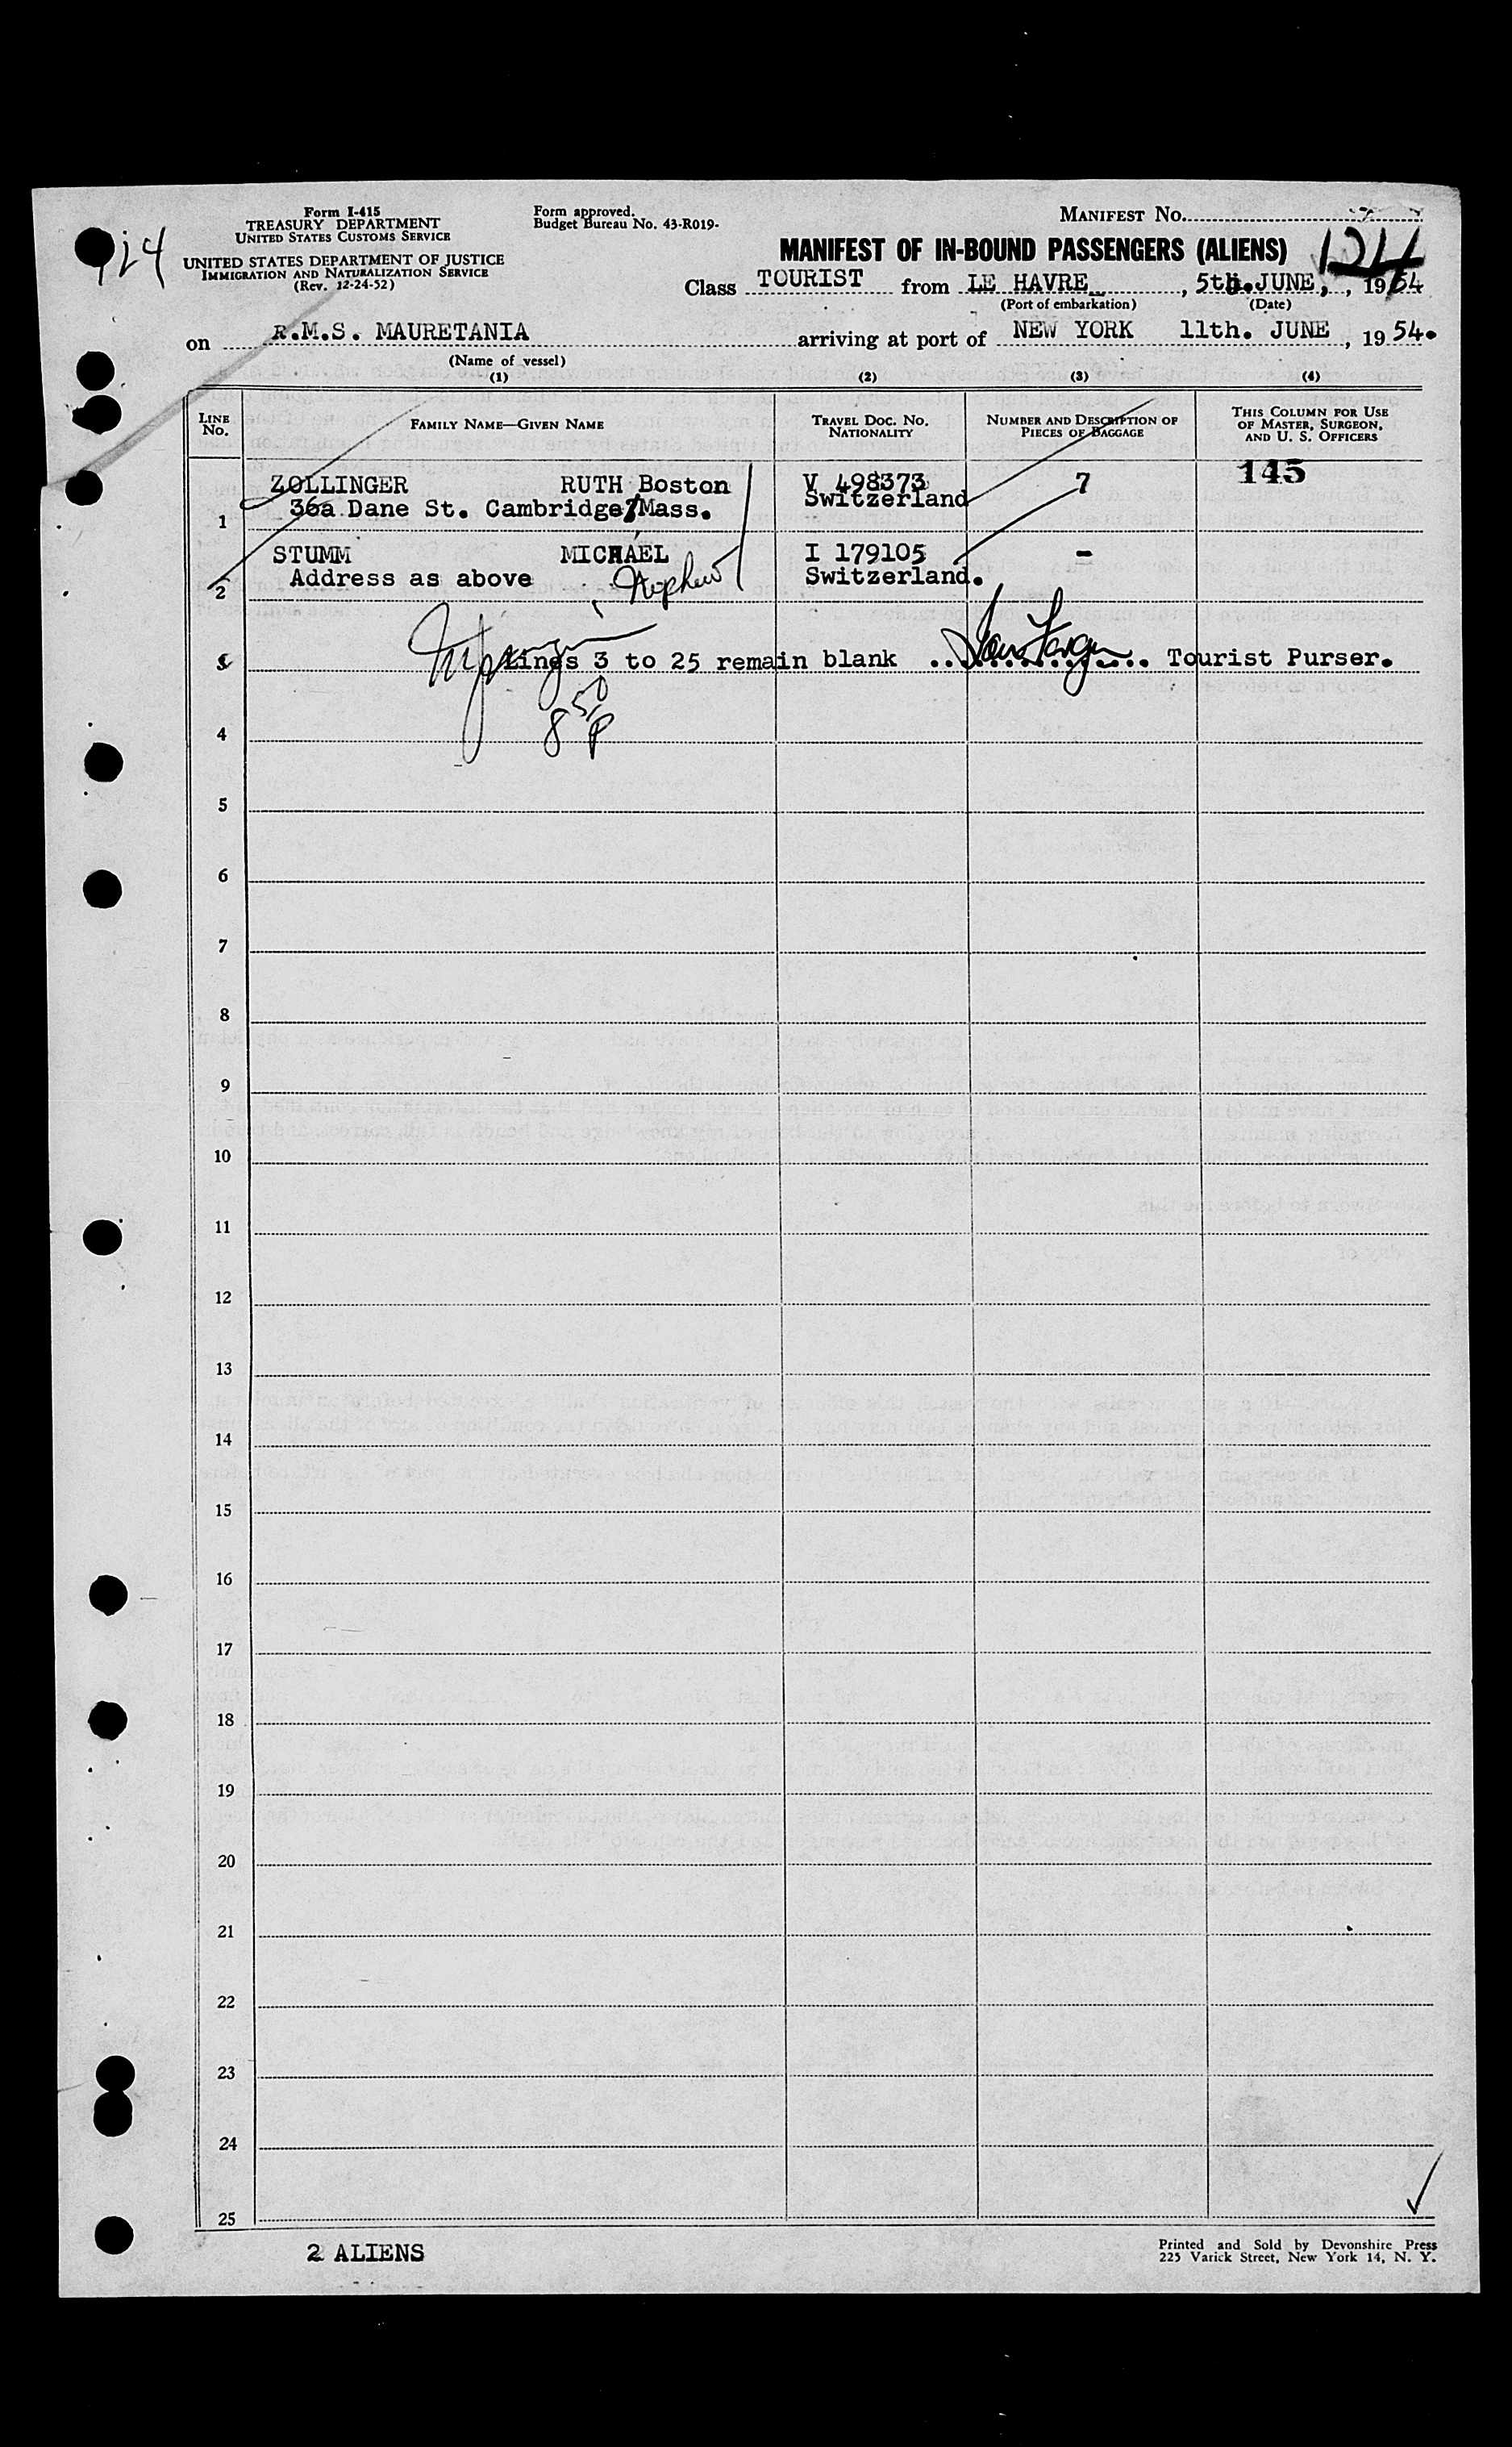 Form I-415
TREASURY DEPARTMENT
UNITED STATES CUSTOMS SERVICE
UNITED STATES DEPARTMENT OF JUSTICE
IMMIGRATION AND NATURALIZATION SERVICE
(Rev. 12-24-52)
Form approved.
Budget Bureau No. 43-R019-
MANIFEST No.
MANIFEST OF IN-BOUND PASSENGERS (ALIENS)
Class TOURIST from LE HAVRE, 5th. JUNE, 1954
(Port of embarkation) (Date)
on R.M.S. MAURETANIA arriving at port of NEW YORK 11th. JUNE, 1954.
(Name of vessel)
(1) (2) (3) (4)
LINE No. FAMILY NAME—GIVEN NAME TRAVEL DOC. No. NATIONALITY NUMBER AND DESCRIPTION OF PIECES OF BAGGAGE THIS COLUMN FOR USE OF MASTER, SURGEON, AND U. S. OFFICERS
ZOLLINGER RUTH Boston V 498373 7 145
1 36a Dane St. Cambridge, Mass. Switzerland
STUMM MICHAEL I 179105 -
2 Address as above Nephew Switzerland.
3 Lines 3 to 25 remain blank .................. Tourist Purser.
8 50 P
4
5
6
7
8
9
10
11
12
13
14
15
16
17
18
19
20
21
22
23
24
25
2 ALIENS
Printed and Sold by Devonshire Press
225 Varick Street, New York 14, N. Y.